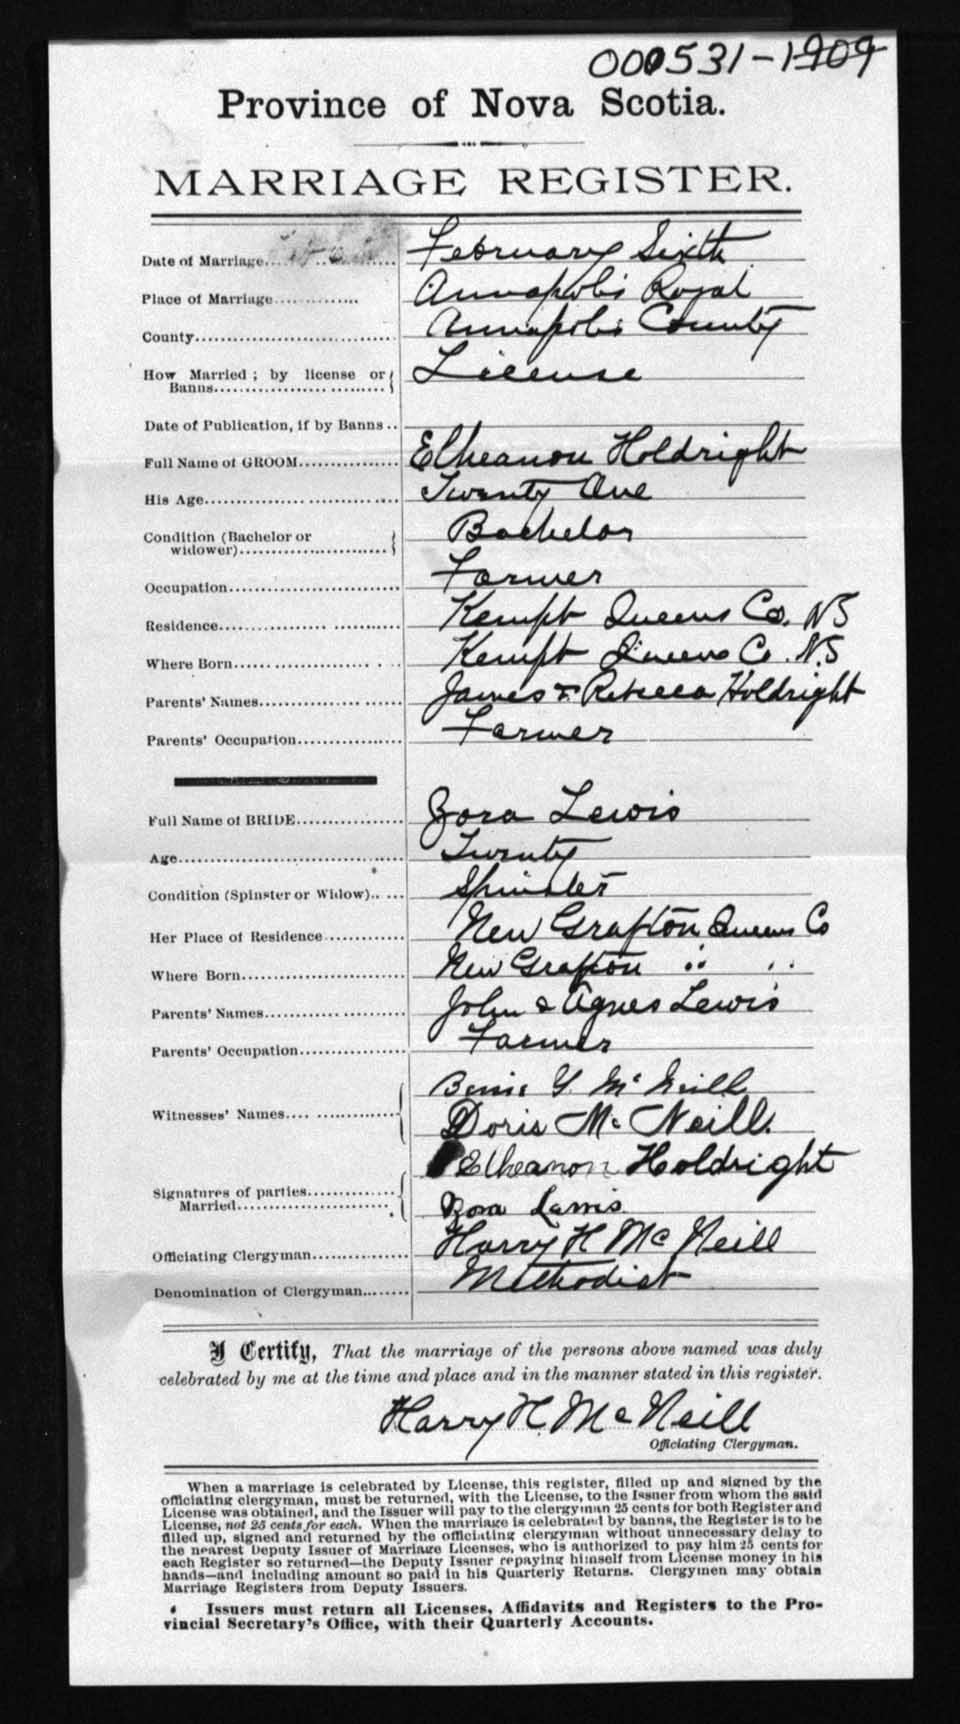 000531-1909
Province of Nova Scotia.
MARRIAGE REGISTER.
Date of Marriage.... February Sixth
Place of Marriage.... Annapolis Royal
County.... Annapolis County
How Married ; by license or
Banns.... License
Date of Publication, if by Banns ..
Full Name of GROOM.... Elheanon Holdright
His Age.... Twenty One
Condition (Bachelor or
widower).... Bachelor
Occupation.... Farmer
Residence.... Kempt Queens Co. NS
Where Born.... Kempt Queens Co. N.S
Parents' Names.... James & Rebecca Holdright
Parents' Occupation.... Farmer
Full Name of BRIDE.... Zora Lewis
Age.... Twenty
Condition (Spinster or Widow).... Spinster
Her Place of Residence.... New Grafton Queens Co
Where Born.... New Grafton " "
Parents' Names.... John & Agnes Lewis
Parents' Occupation.... Farmer
Witnesses' Names.... Y. McNeill
Doris McNeill.
Signatures of parties
Married.... Elheanon Holdright
Zora Lewis
Officiating Clergyman.... Harry H McNeill
Denomination of Clergyman.... Methodist
I Certify, That the marriage of the persons above named was duly
celebrated by me at the time and place and in the manner stated in this register.
Harry H. McNeill
Officiating Clergyman.
When a marriage is celebrated by License, this register, filled up and signed by the
officiating clergyman, must be returned, with the License, to the Issuer from whom the said
License was obtained, and the Issuer will pay to the clergyman 25 cents for both Register and
License, not 25 cents for each. When the marriage is celebrated by banns, the Register is to be
filled up, signed and returned by the officiating clergyman without unnecessary delay to
the nearest Deputy Issuer of Marriage Licenses, who is authorized to pay him 25 cents for
each Register so returned—the Deputy Issuer repaying himself from License money in his
hands—and including amount so paid in his Quarterly Returns. Clergymen may obtain
Marriage Registers from Deputy Issuers.
Issuers must return all Licenses, Affidavits and Registers to the Pro-
vincial Secretary's Office, with their Quarterly Accounts.